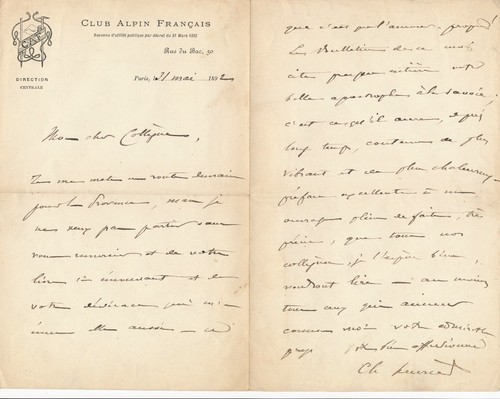 CLUB ALPIN FRANÇAIS
Reconnu d'utilité publique par décret du 31 Mars 1882
Rue du Bac, 30
CAF
DIRECTION
CENTRALE
Paris, 31 mai 1892
Mon cher Collègue,
Je me mets en route demain
pour la Provence, mais je
ne veux pas partir sans
vous remercier et de votre
livre si intéressant et de
votre dédicace qui m'
aussi
que
Le Bulletin de ce mois
cite presque entière votre
belle apostrophe à la Savoie ;
c'est ce qu'il aura, depuis
longtemps, contenu de plus
vibrant et de plus chaleureux,
préface excellente à un
ouvrage plein de faits, très
précis, que tous nos
collègues, je l'espère bien,
voudront lire — au moins
tous ceux qui aiment
comme moi votre
pays Votre bien affectionné
Ch